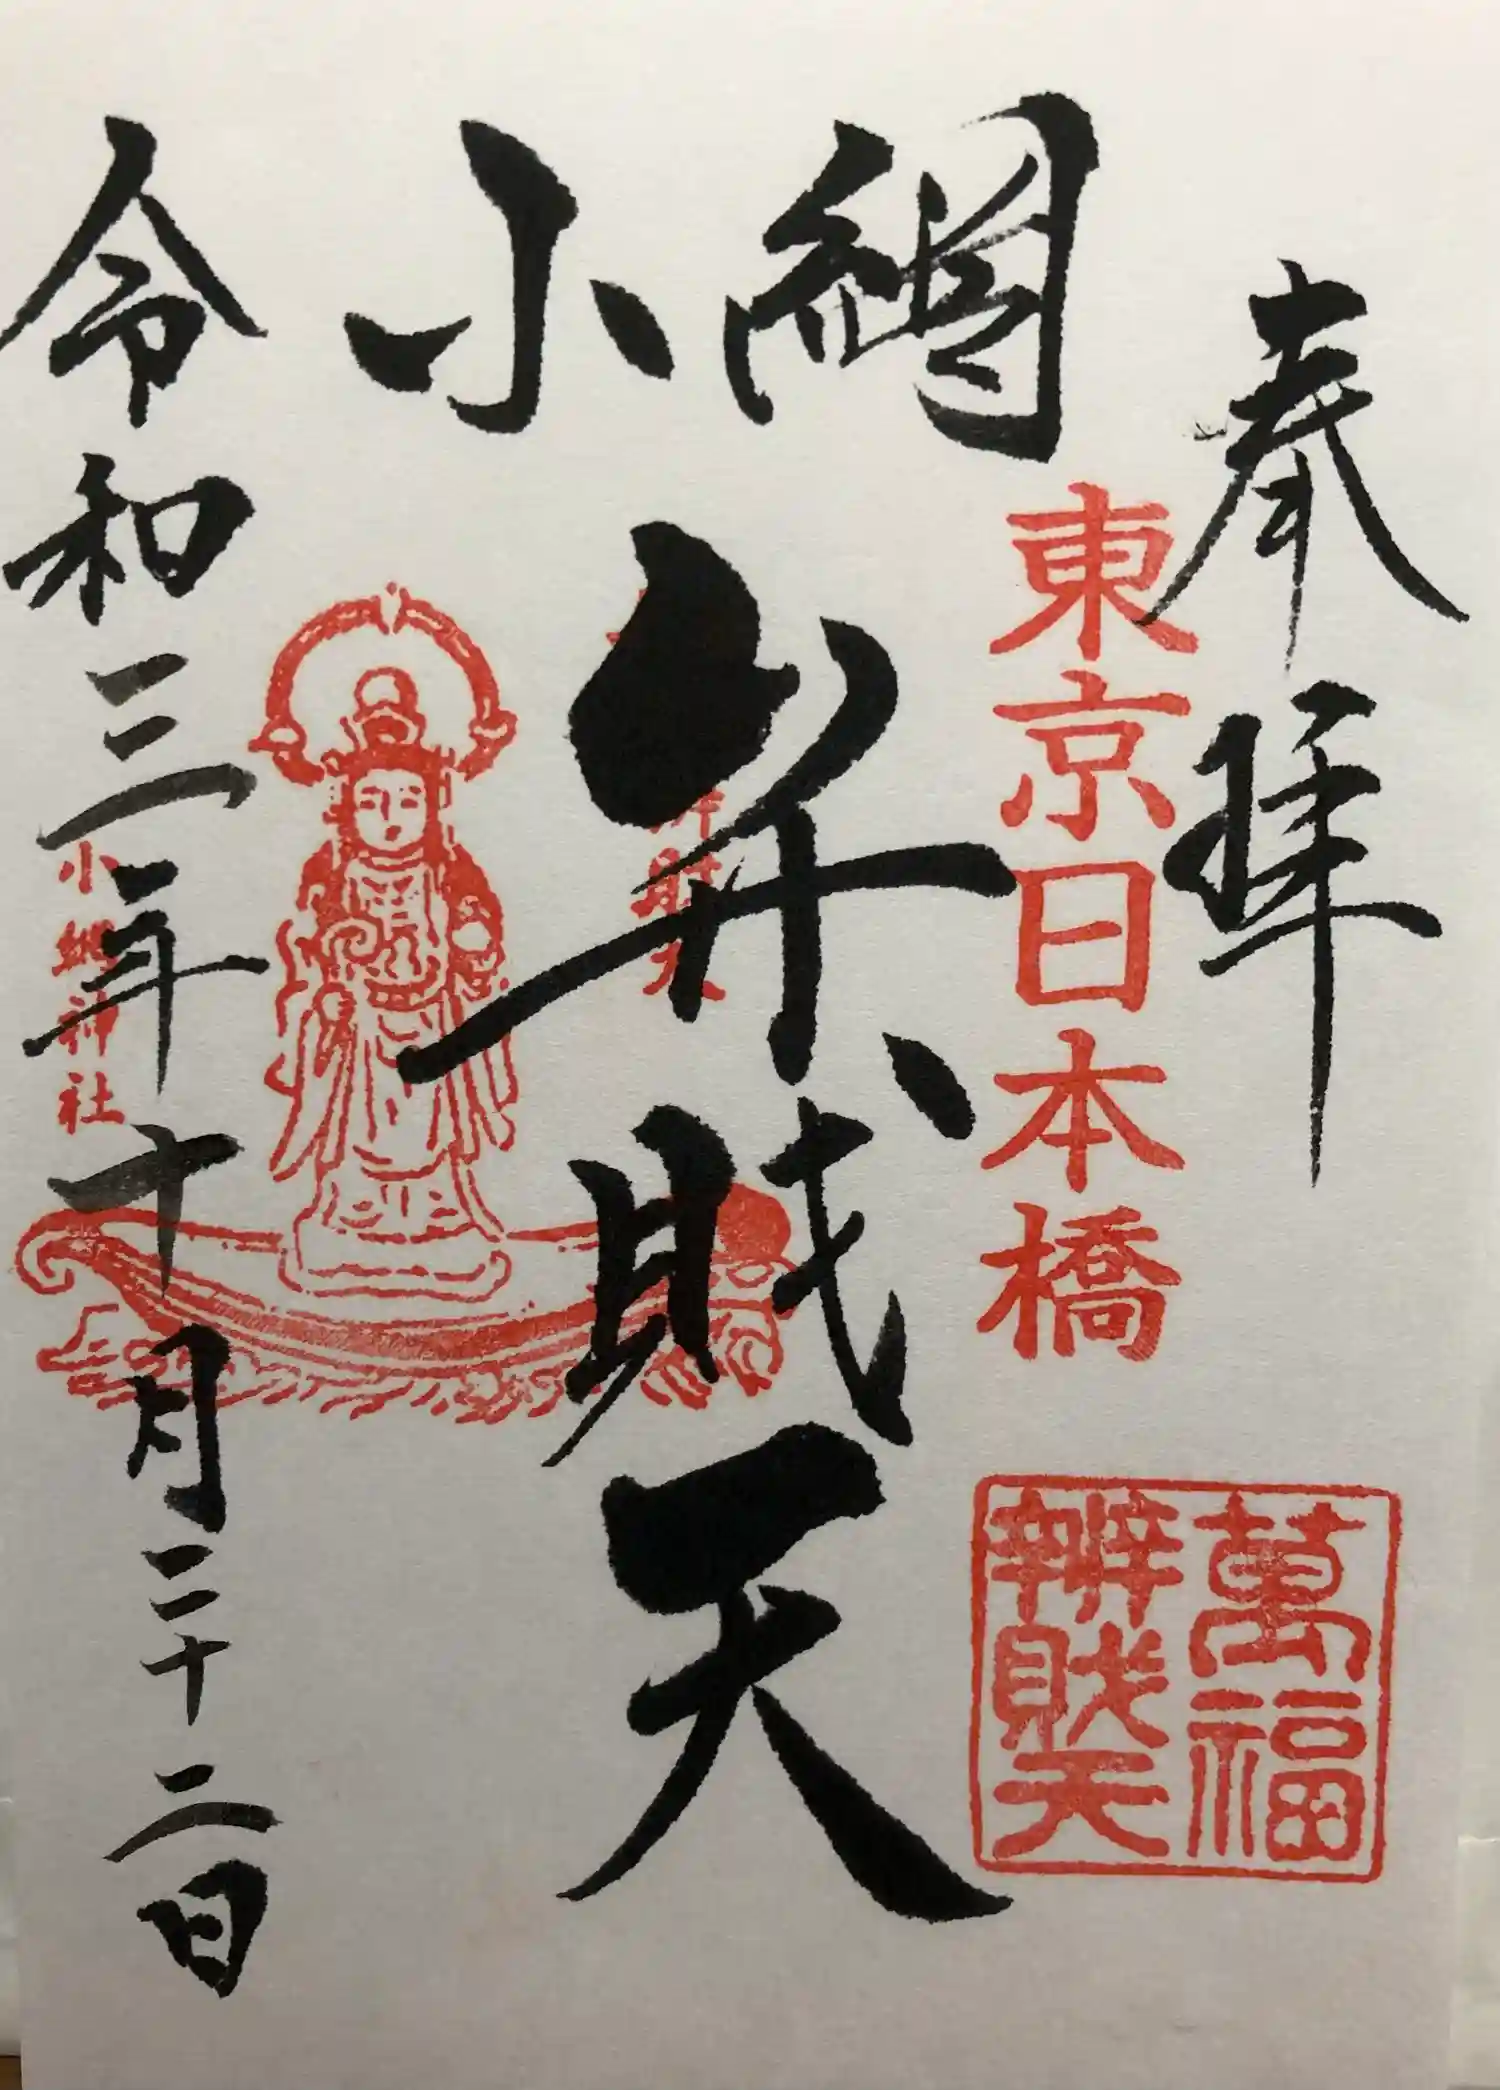 奉拝
東京日本橋
萬福
辨財天
小網
弁財天
小網神社
令和三年十月二十二日